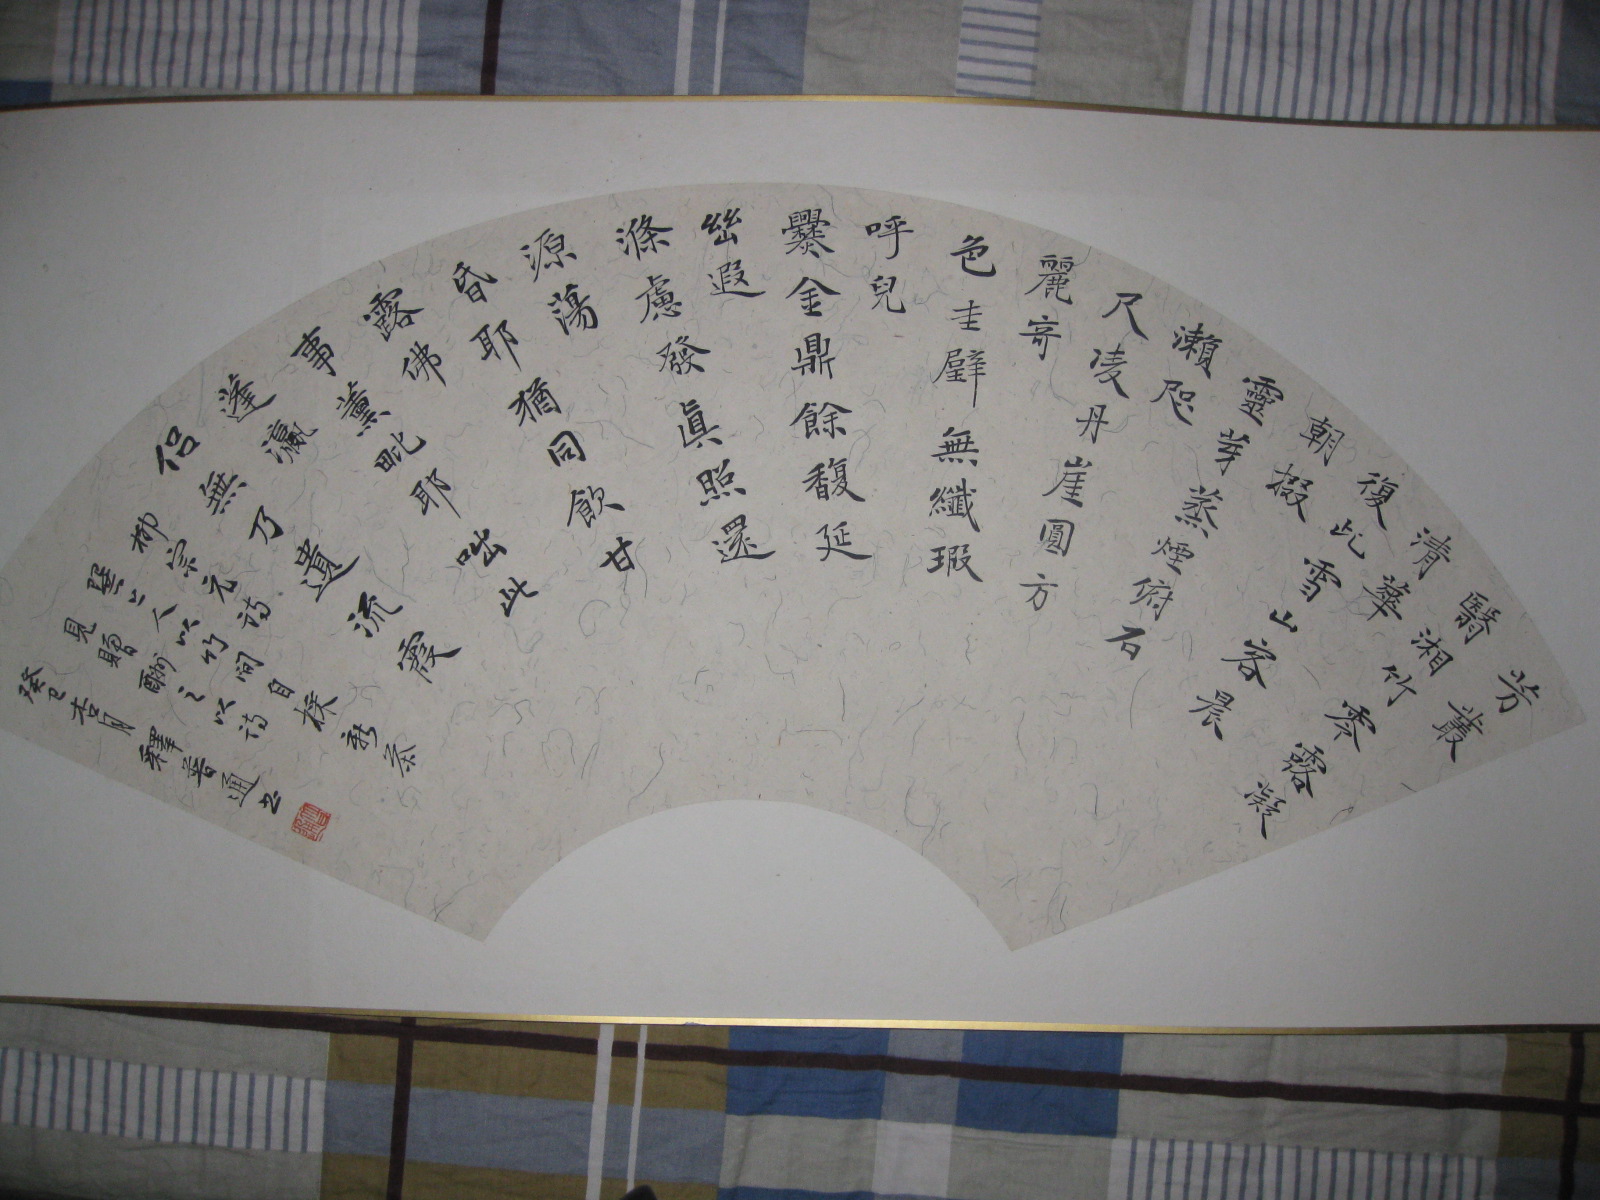 芳叢
翳湘竹零露凝
清華
復此雪山客晨
朝掇
靈芽蒸煙俯石
瀨咫
尺凌丹崖圓方
麗奇
色圭璧無纖瑕
呼兒
爨金鼎餘馥延
幽遐
滌慮發眞照還
源蕩
昏耶猶同飲甘
露佛
事薰毗耶咄此
蓬瀛
侶無乃遺流霞
柳宗元詩
巽上人以竹間自採新茶
見贈酬之以詩
癸巳杏月釋普通書